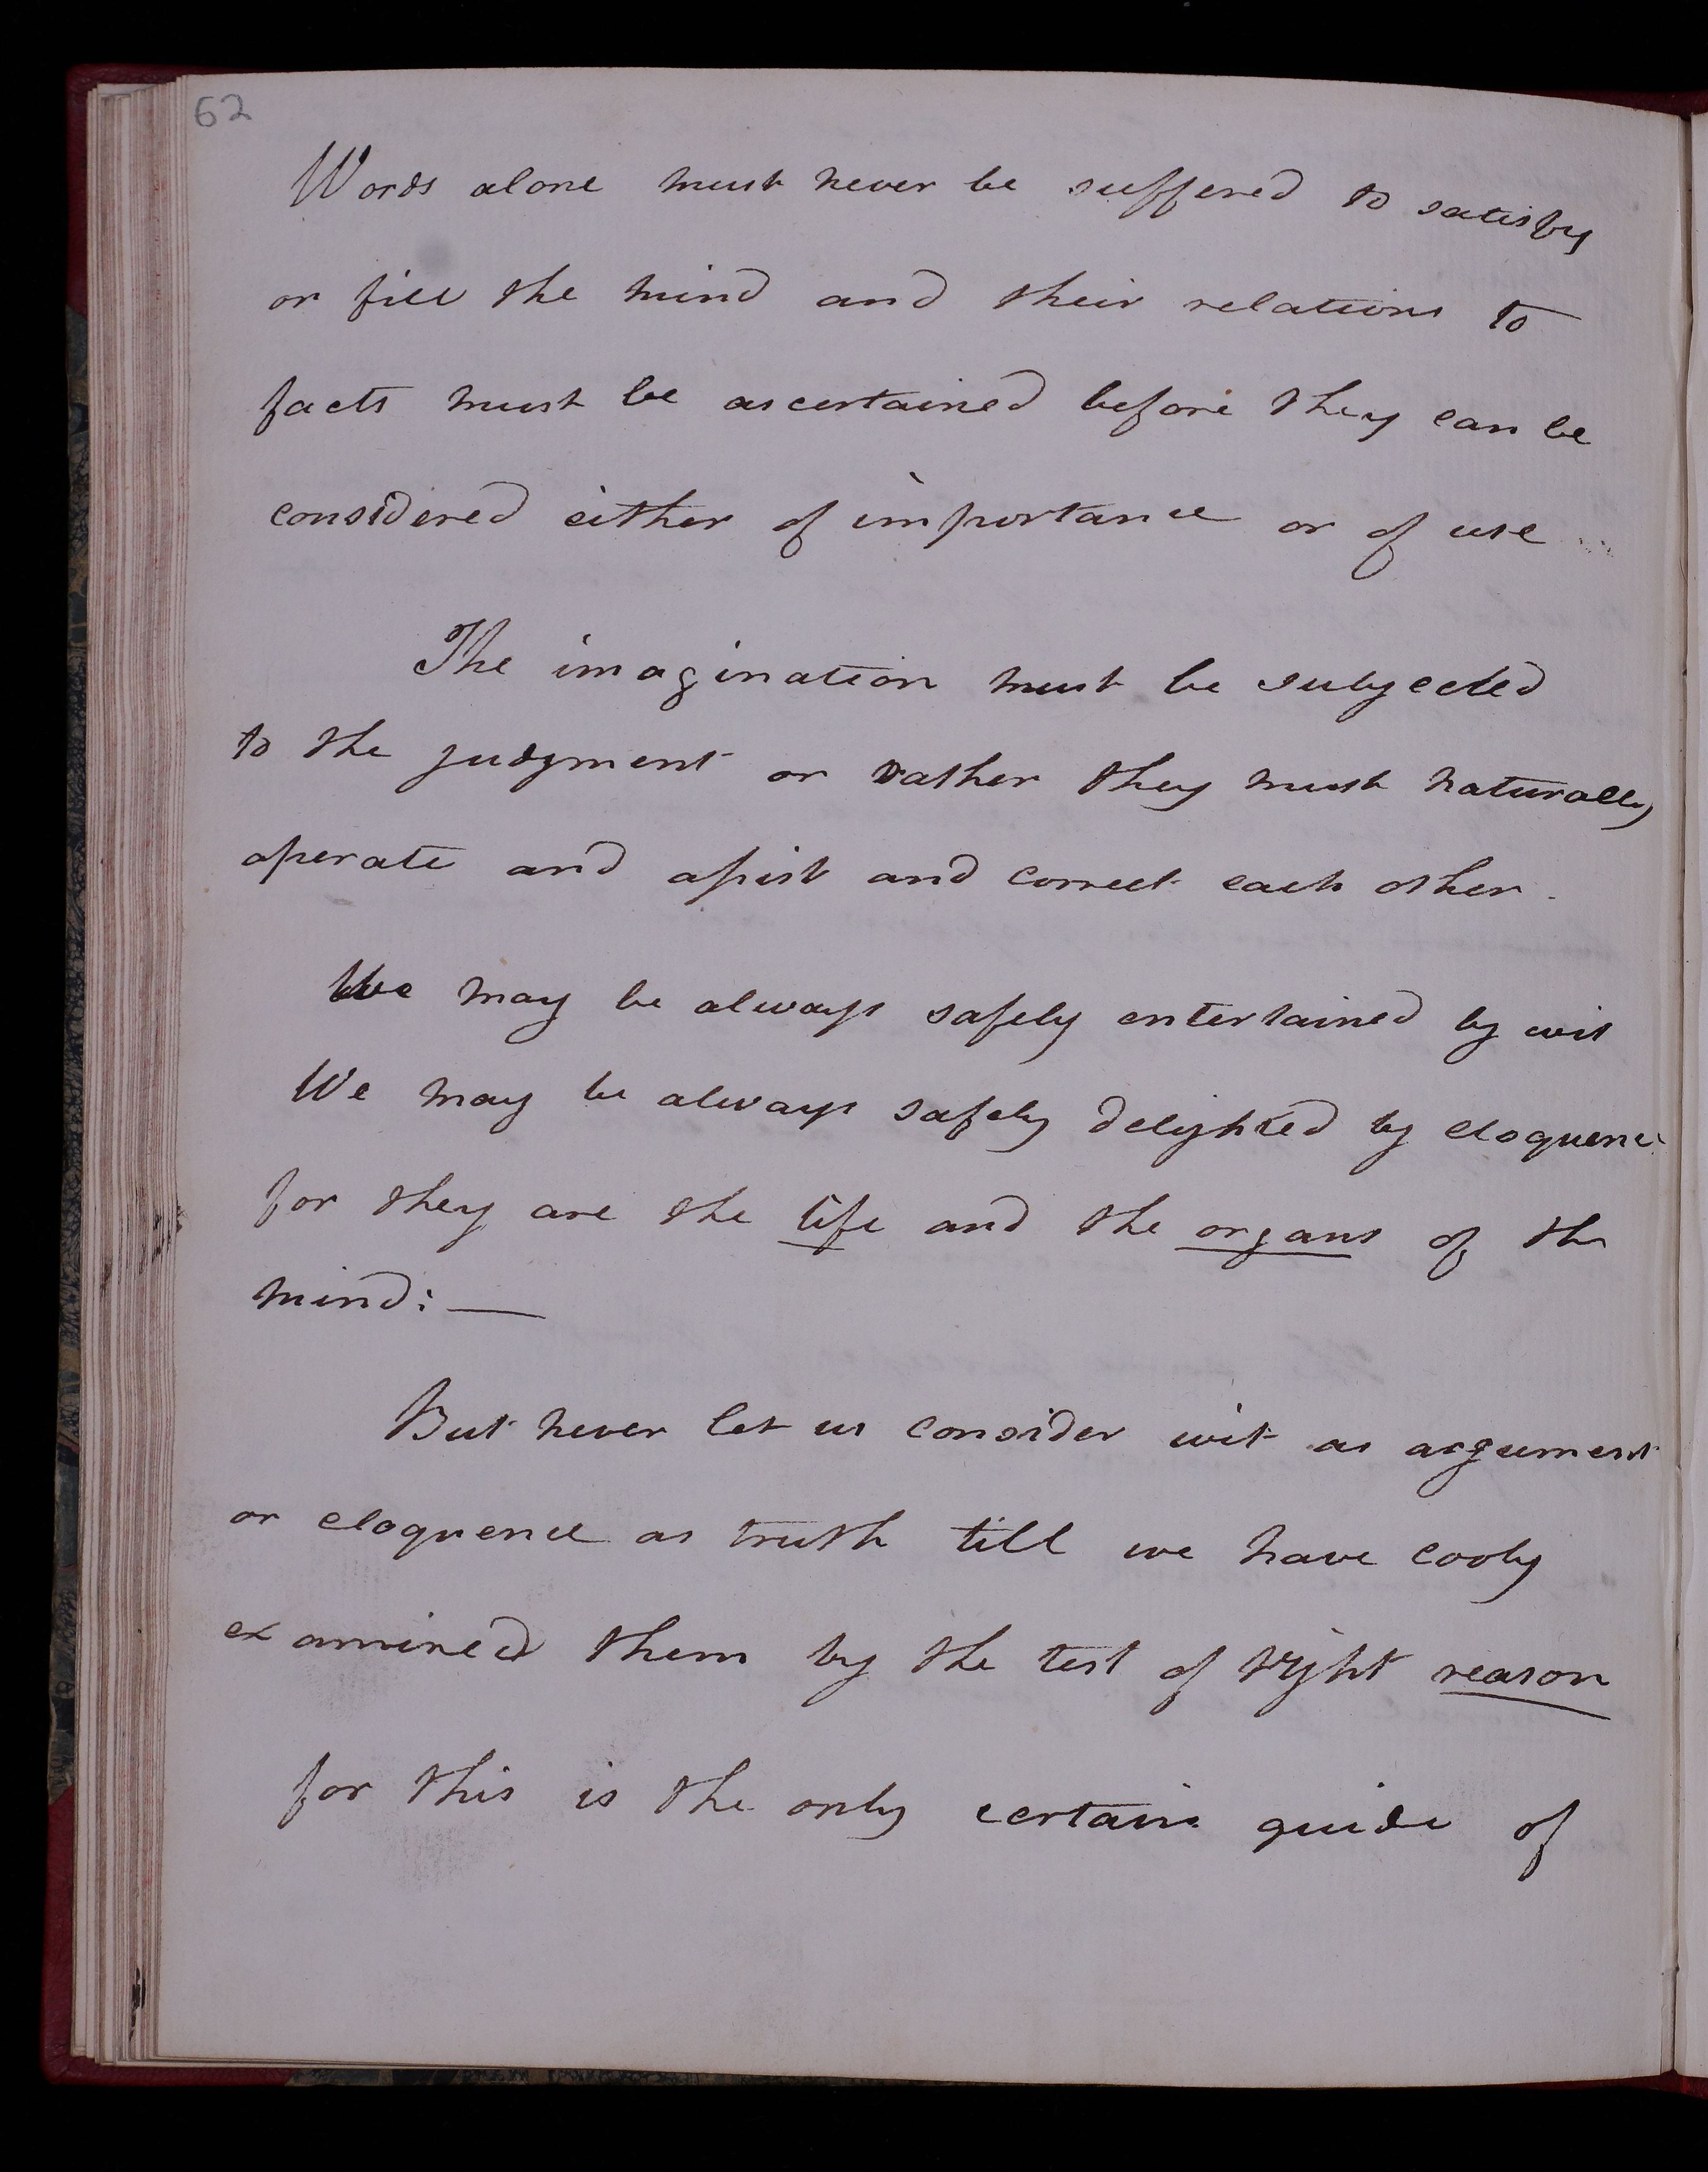 62
Words alone must never be suffered to satisfy
or fill the mind and their relations to
facts must be ascertained before they can be
considered either of importance or of use
The imagination must be subjected
to the judgment or rather they must naturally
operate and assist and correct each other.
We may be always safely entertained by wit
We may be always safely delighted by eloquence
for they are the life and the organs of the
mind: —
But never let us consider wit as argument
or eloquence as truth till we have cooly
examined them by the test of right reason
for this is the only certain guide of